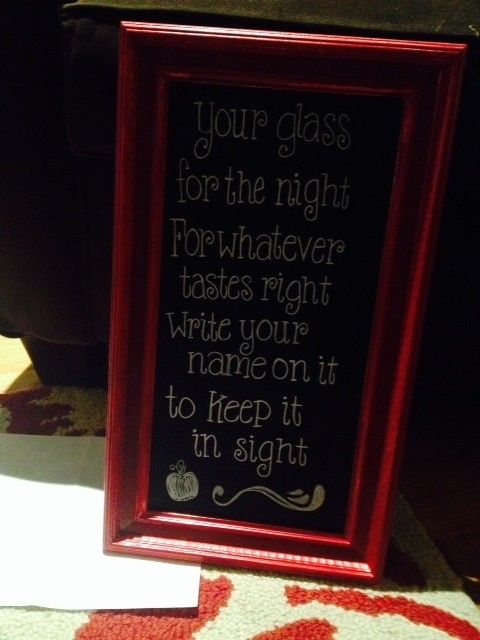 Your glass
for the night
For whatever
tastes right
Write your
name on it
to keep it
in sight